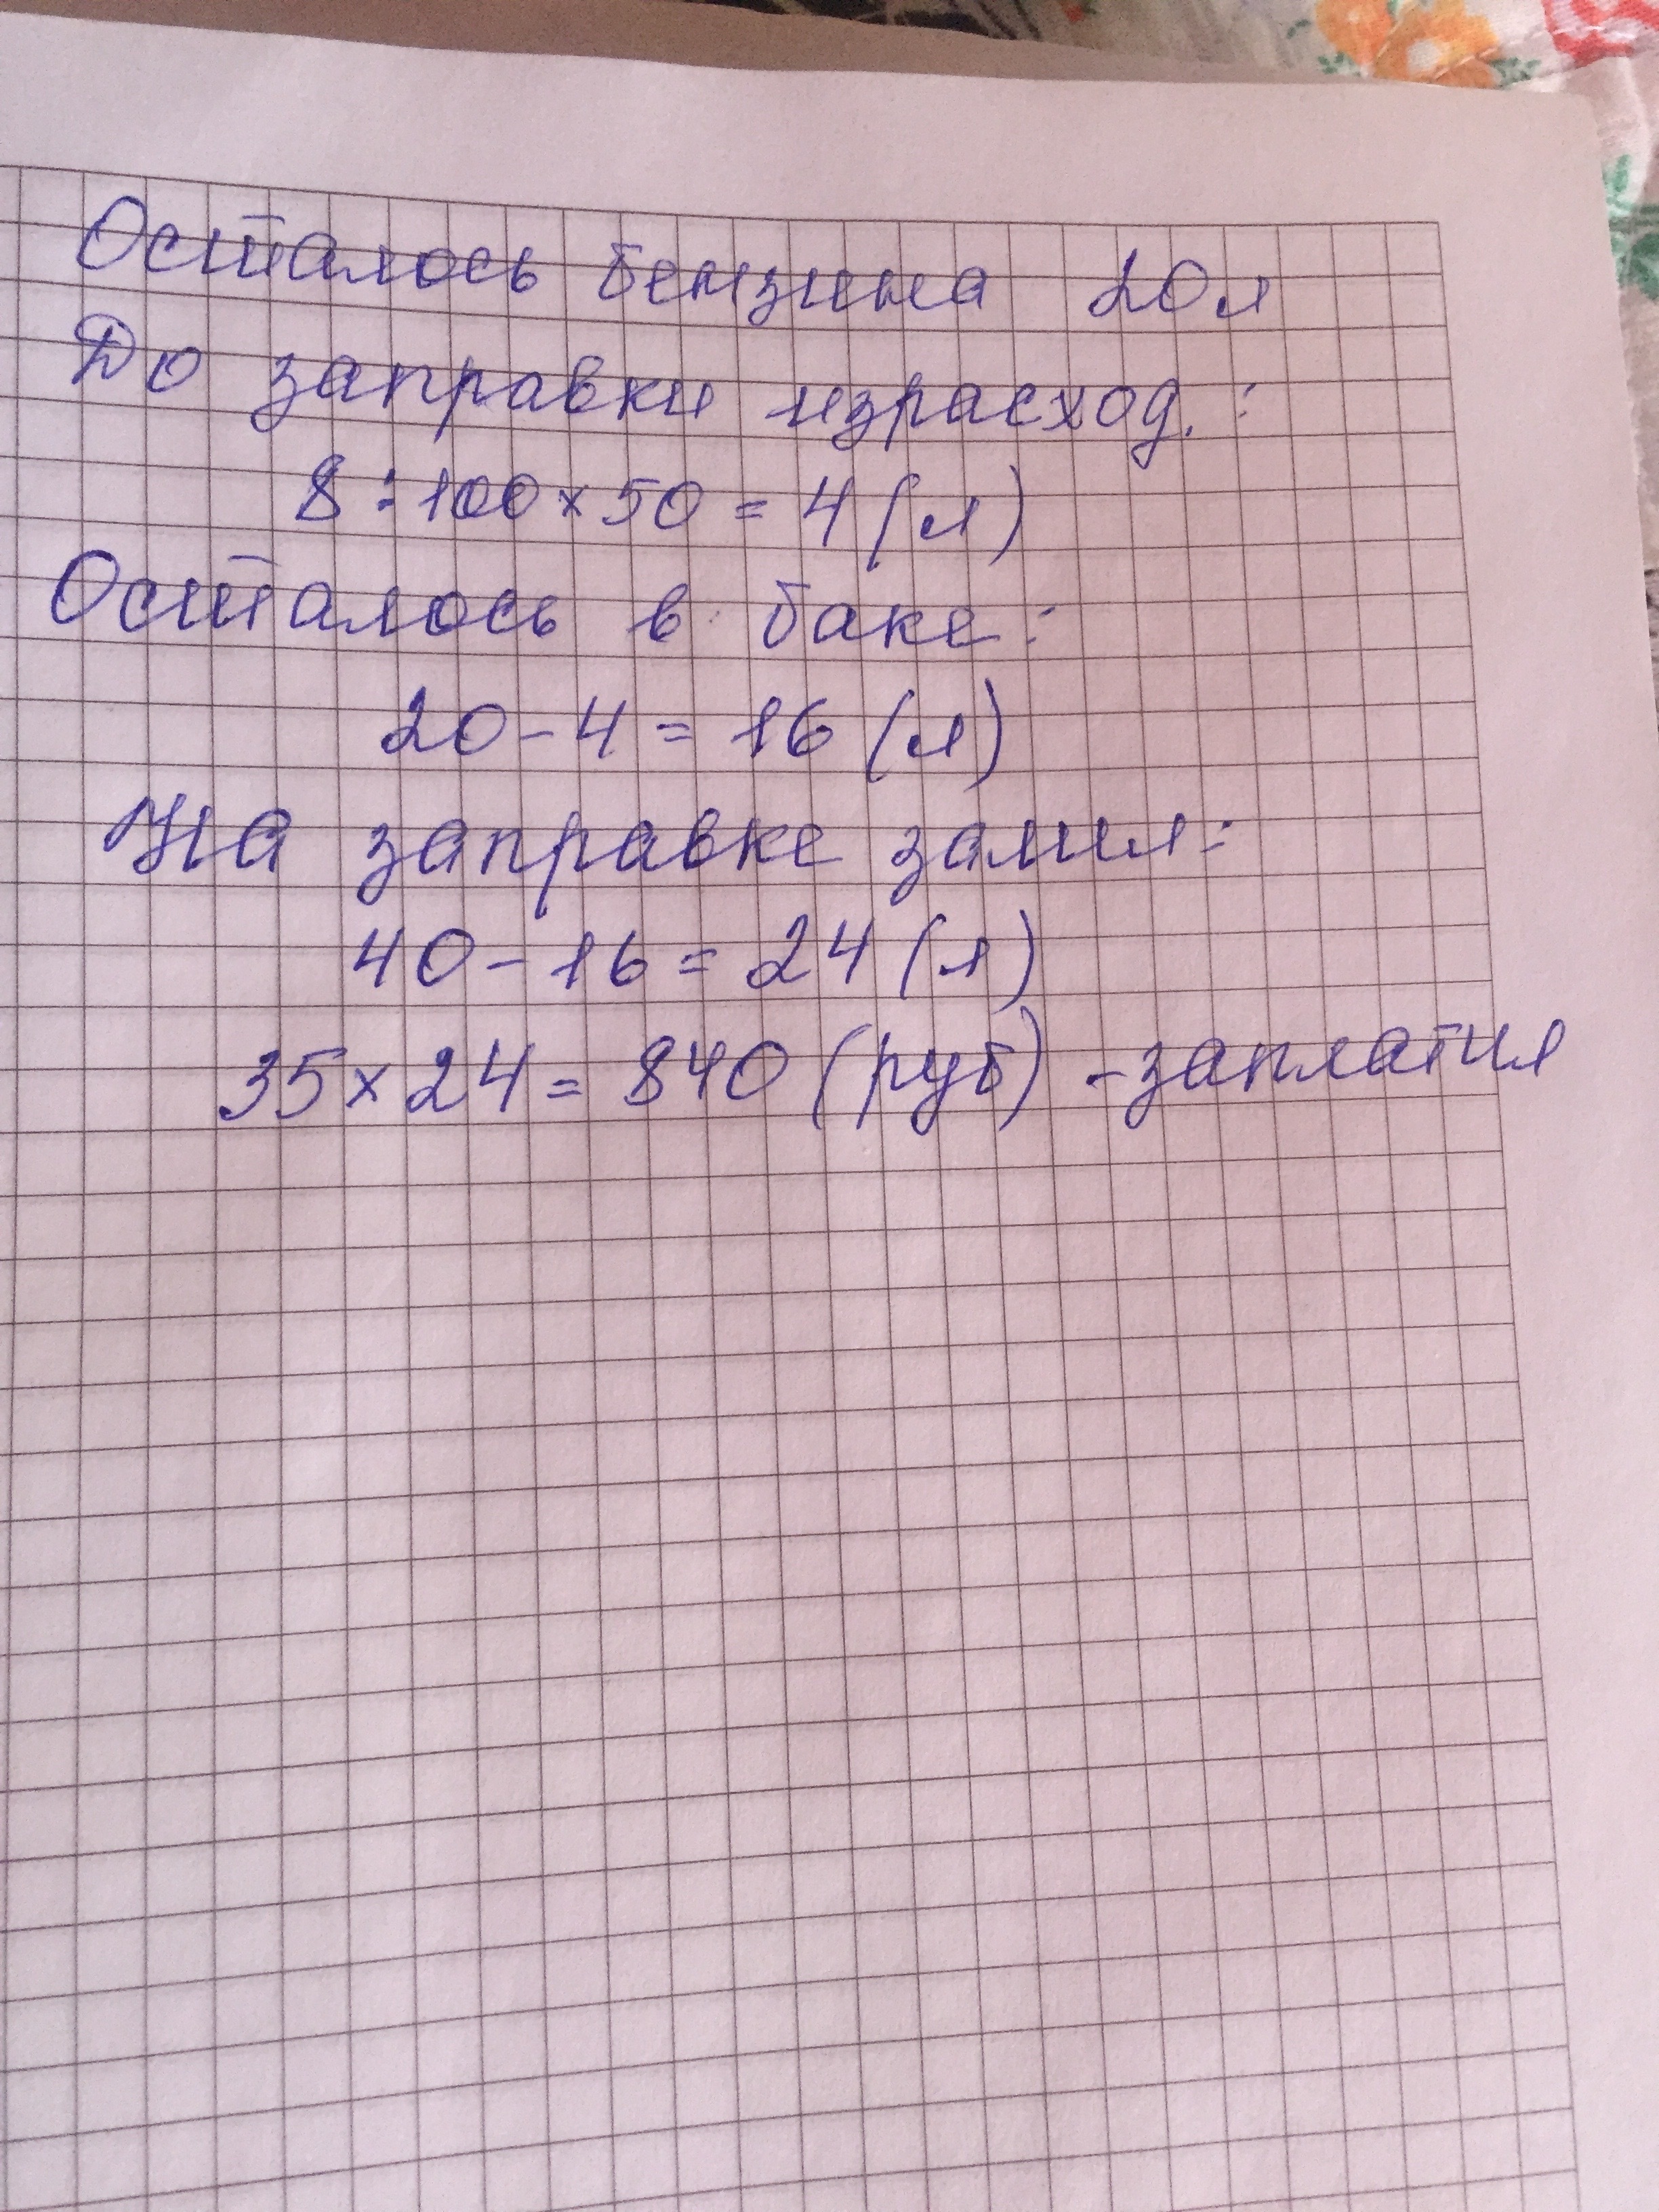 Осталось бензина 20 л
До заправки израсход.:
8 : 100 × 50 = 4 (л)
Осталось в баке:
20 - 4 = 16 (л)
На заправке залил:
40 - 16 = 24 (л)
35 × 24 = 840 (руб) - заплатил